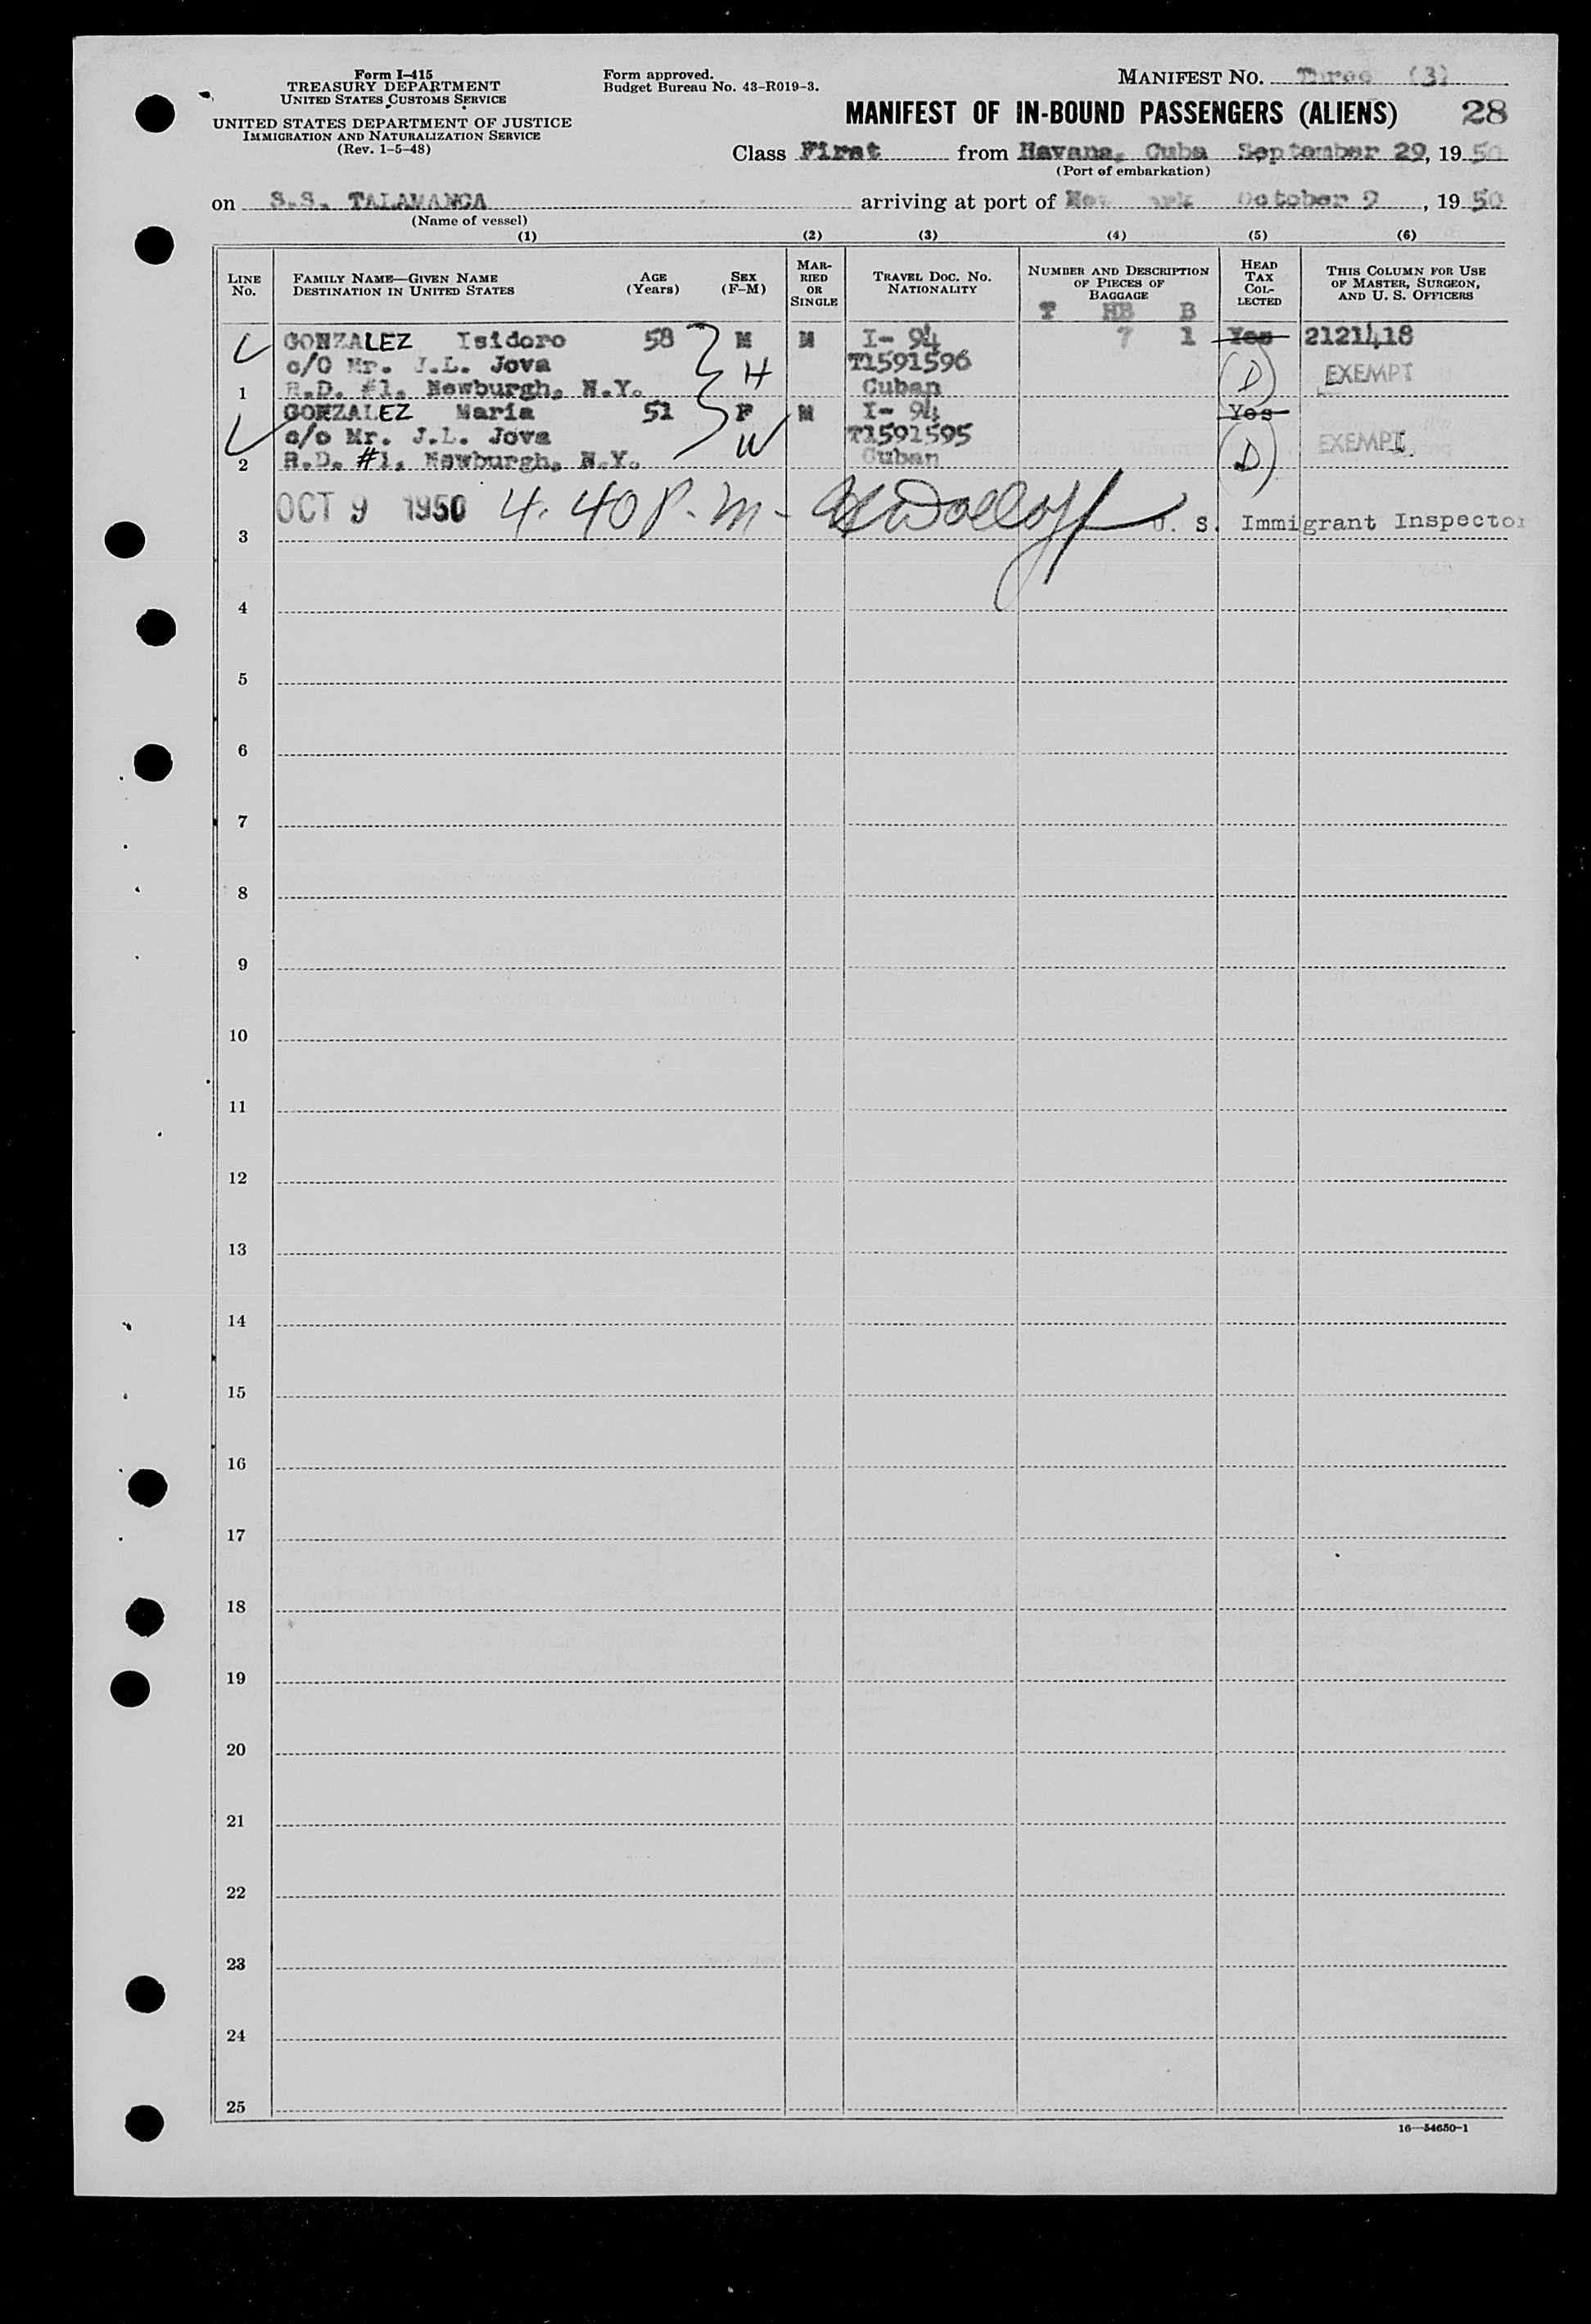 Form I-415
TREASURY DEPARTMENT
UNITED STATES CUSTOMS SERVICE
UNITED STATES DEPARTMENT OF JUSTICE
IMMIGRATION AND NATURALIZATION SERVICE
(Rev. 1-5-48)
Form approved.
Budget Bureau No. 43-R019-3.
MANIFEST NO. Three (3)
MANIFEST OF IN-BOUND PASSENGERS (ALIENS) 28
Class First from Havana, Cuba September 29, 19 50
(Port of embarkation)
on S.S. TALAMANCA arriving at port of October 9, 19 50
(Name of vessel)
(1) (2) (3) (4) (5) (6)
LINE No. FAMILY NAME—GIVEN NAME DESTINATION IN UNITED STATES AGE (Years) SEX (F-M) MARRIED OR SINGLE TRAVEL DOC. NO. NATIONALITY NUMBER AND DESCRIPTION OF PIECES OF BAGGAGE HEAD TAX COLLECTED THIS COLUMN FOR USE OF MASTER, SURGEON, AND U. S. OFFICERS
T HB B
GONZALEZ Isidoro 58 M M I- 94 7 1 Yes 2121418
c/O Mr. J.L. Jova H T1591596 D EXEMPT
1 R.D. #1, Newburgh, N.Y. Cuban
GONZALEZ Maria 51 F M I- 94 Yes
c/o Mr. J.L. Jova W T1591595 D EXEMPT
2 R.D. #1, Newburgh, N.Y. Cuban
OCT 9 1950 4.40 P.m- U. S. Immigrant Inspector
3
4
5
6
7
8
9
10
11
12
13
14
15
16
17
18
19
20
21
22
23
24
25
16—54650-1